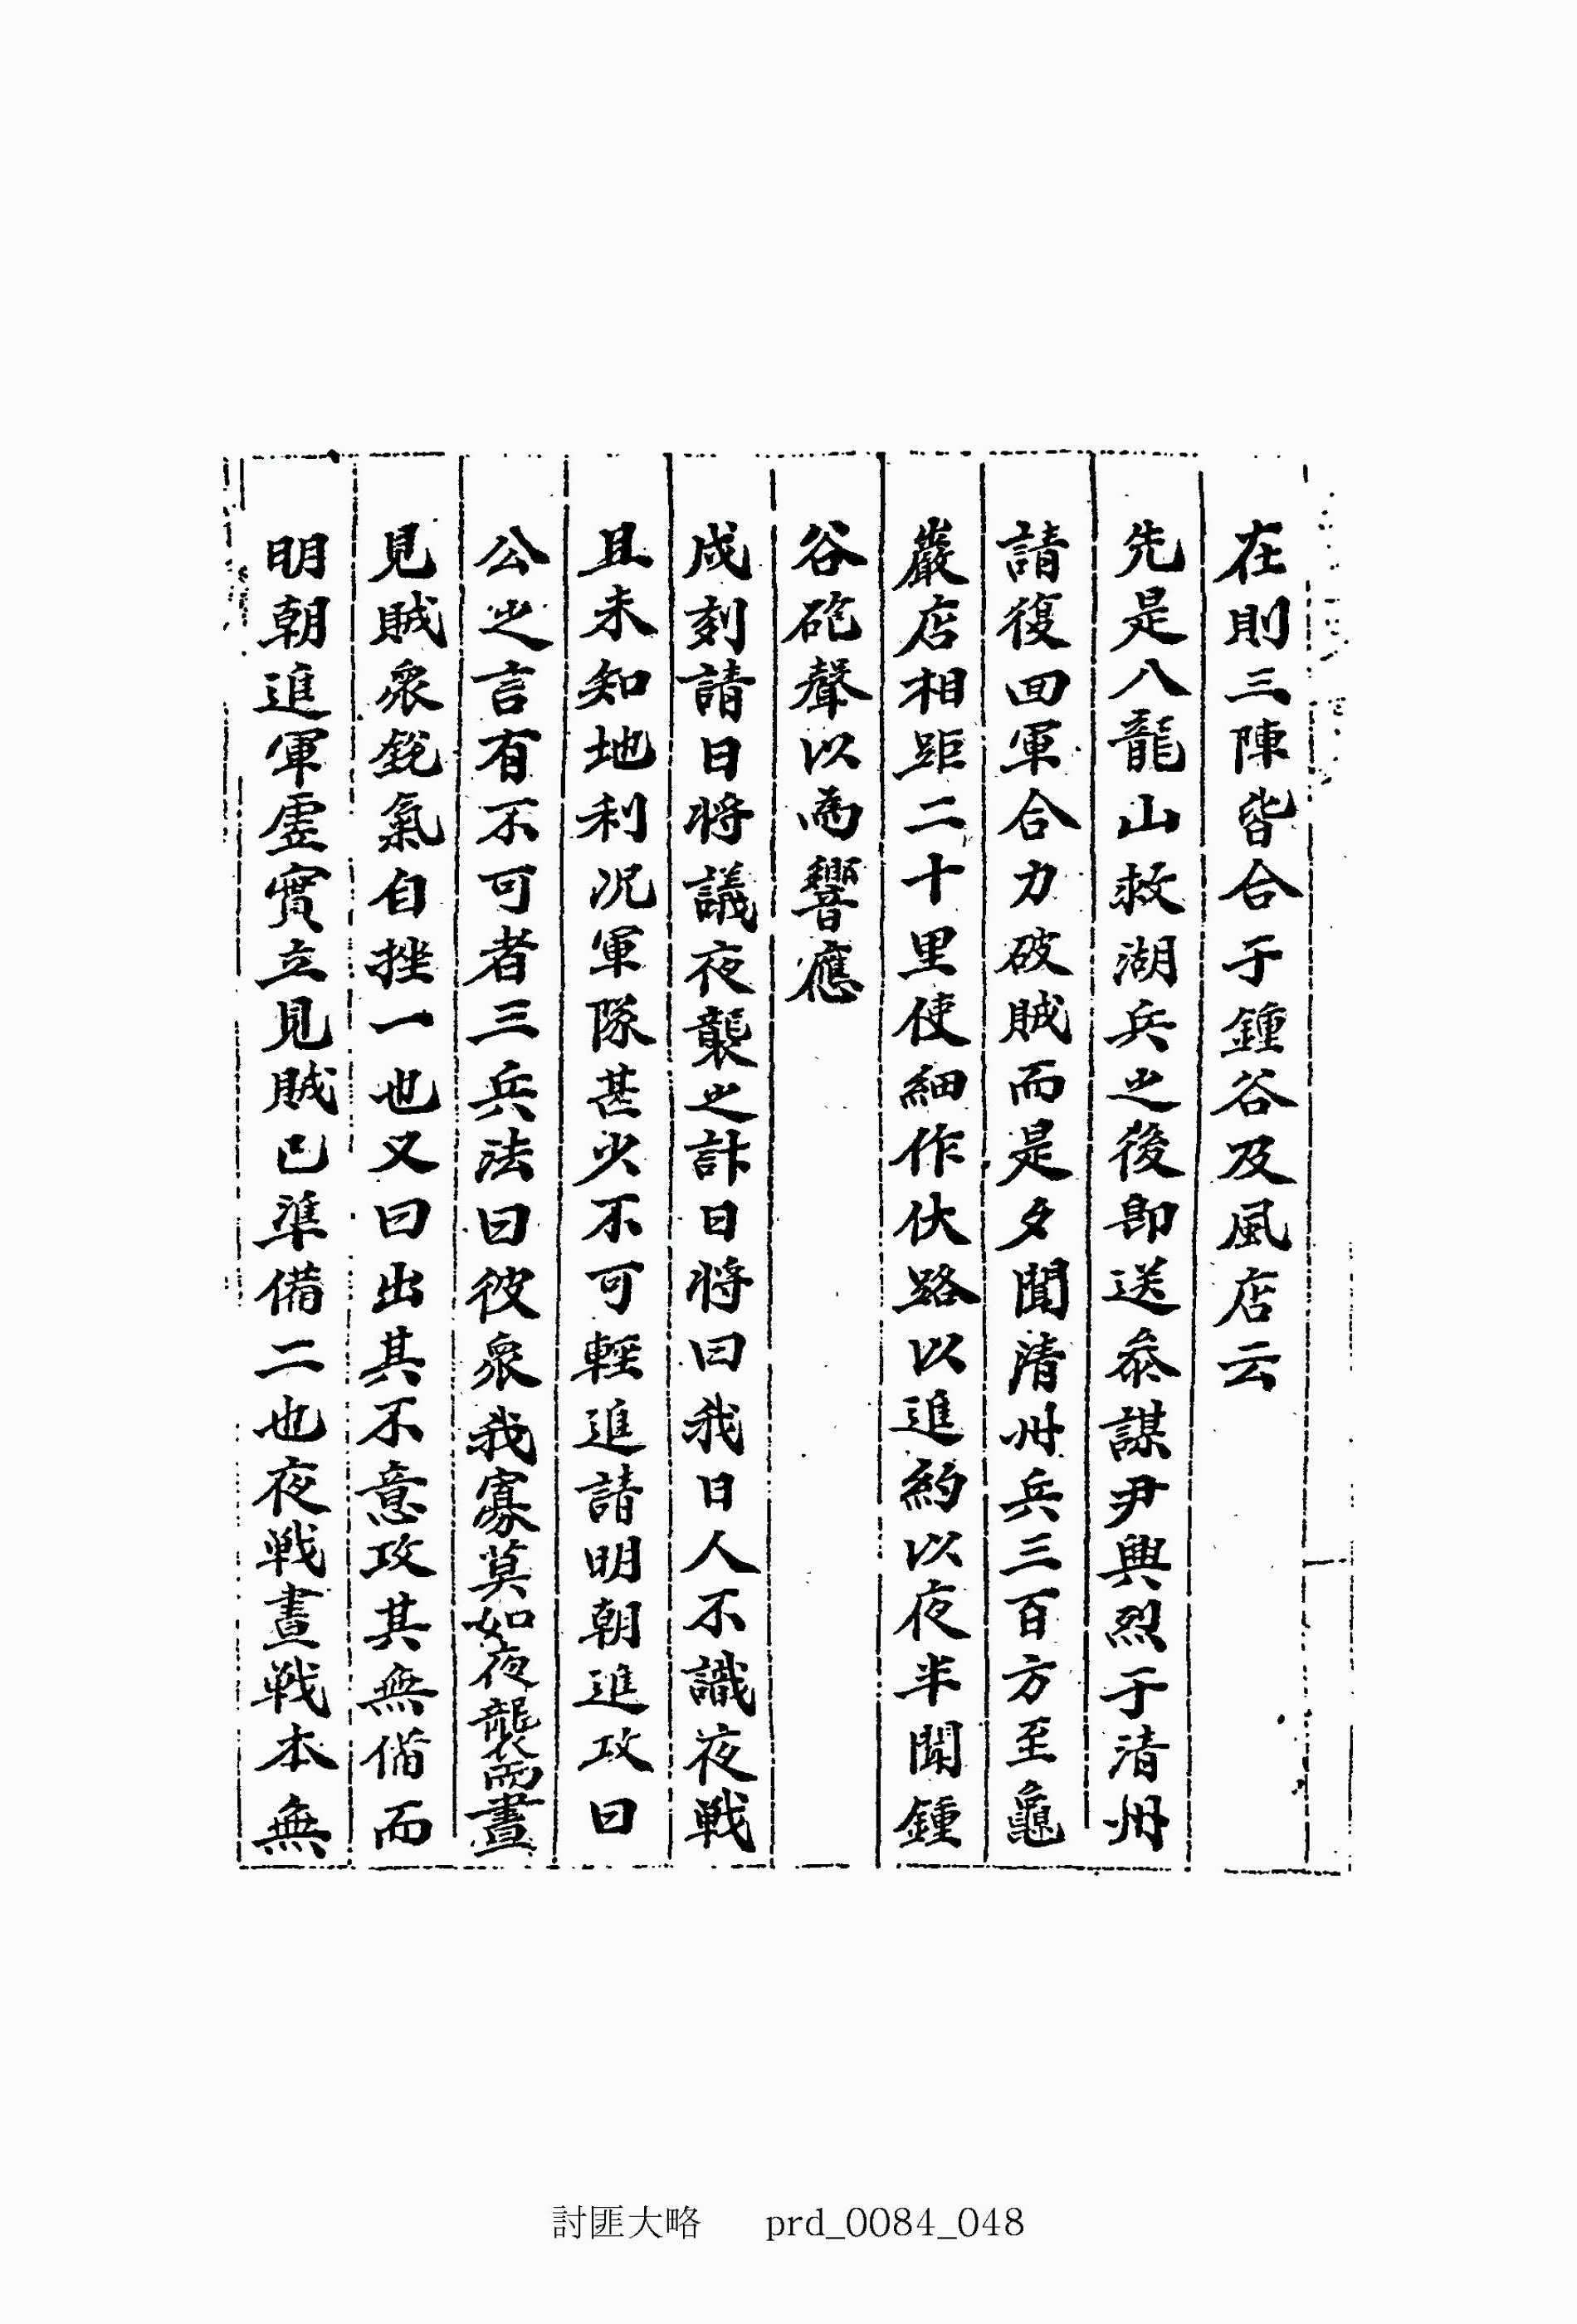 在則三陣皆合于鍾谷及風店云
先是八龍山救湖兵之後卽送叅謀尹興烈于清州
請復回軍合力破賊而是夕聞清州兵三百方至龜
巖店相距二十里使細作伏路以進約以夜半聞鍾
谷砲聲以爲響應
戌刻請日將議夜襲之計日將曰我日人不識夜戦
且未知地利况軍隊甚少不可輕進請明朝進攻曰
公之言有不可者三兵法曰彼衆我寡莫如夜襲而晝
見賊衆銳氣自挫一也又曰出其不意攻其無備而
明朝進軍虛實立見賊已準備二也夜戦晝戦本無
討匪大略 prd_0084_048